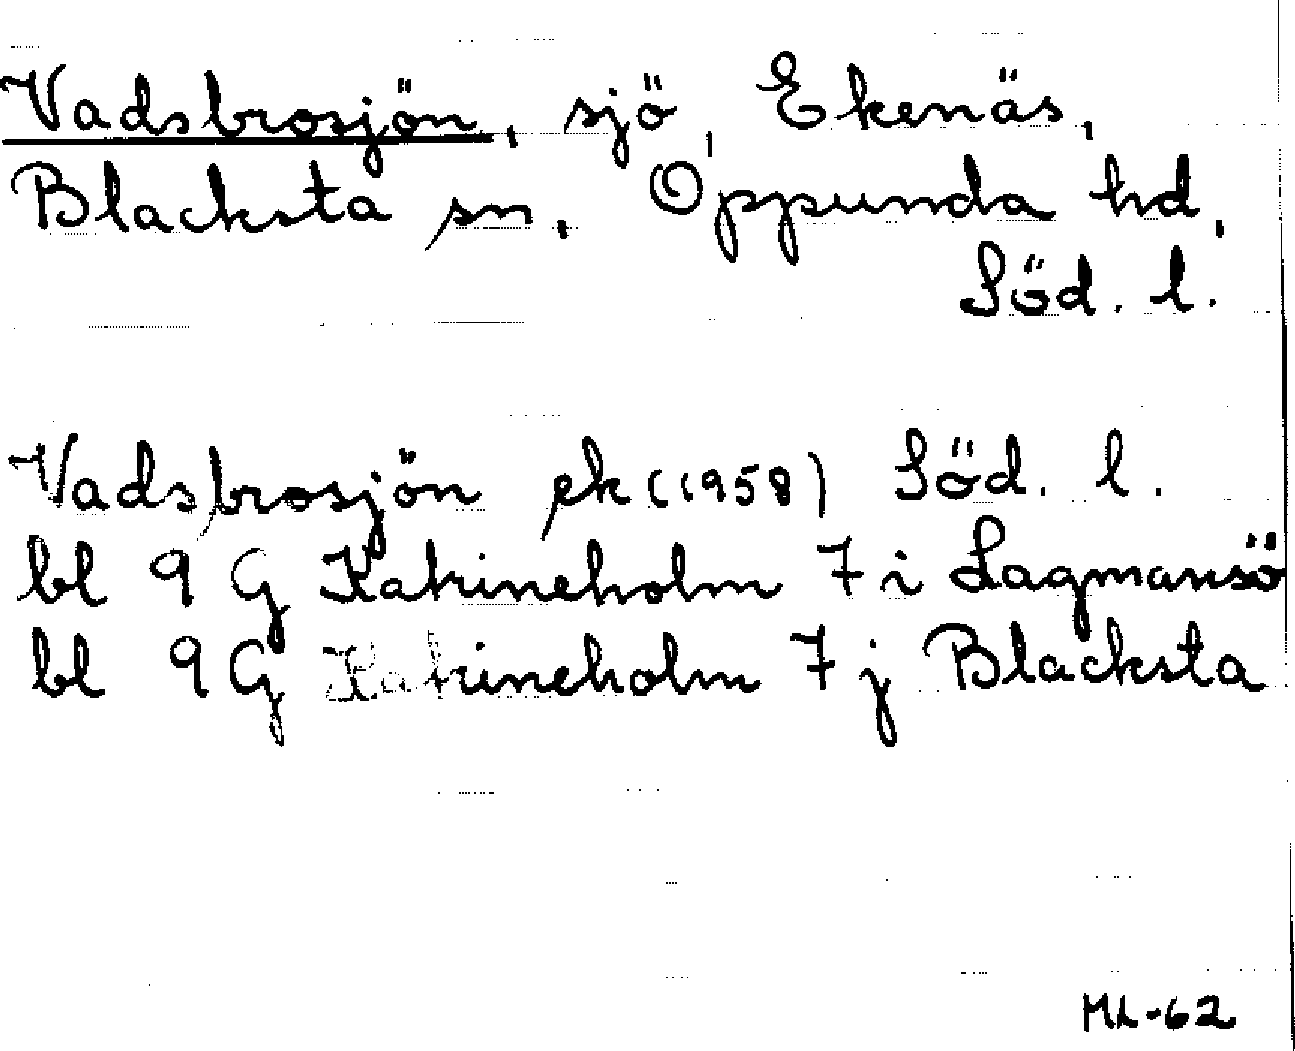 Vadsbrosjön, sjö, Ekenäs,
Blacksta sn, Oppunda hd,
Söd. l.
Vadsbrosjön ek (1958) Söd. l.
bl 9 G Katrineholm 7 i Lagmansö
bl 9 G Katrineholm 7 j Blacksta
ML-62